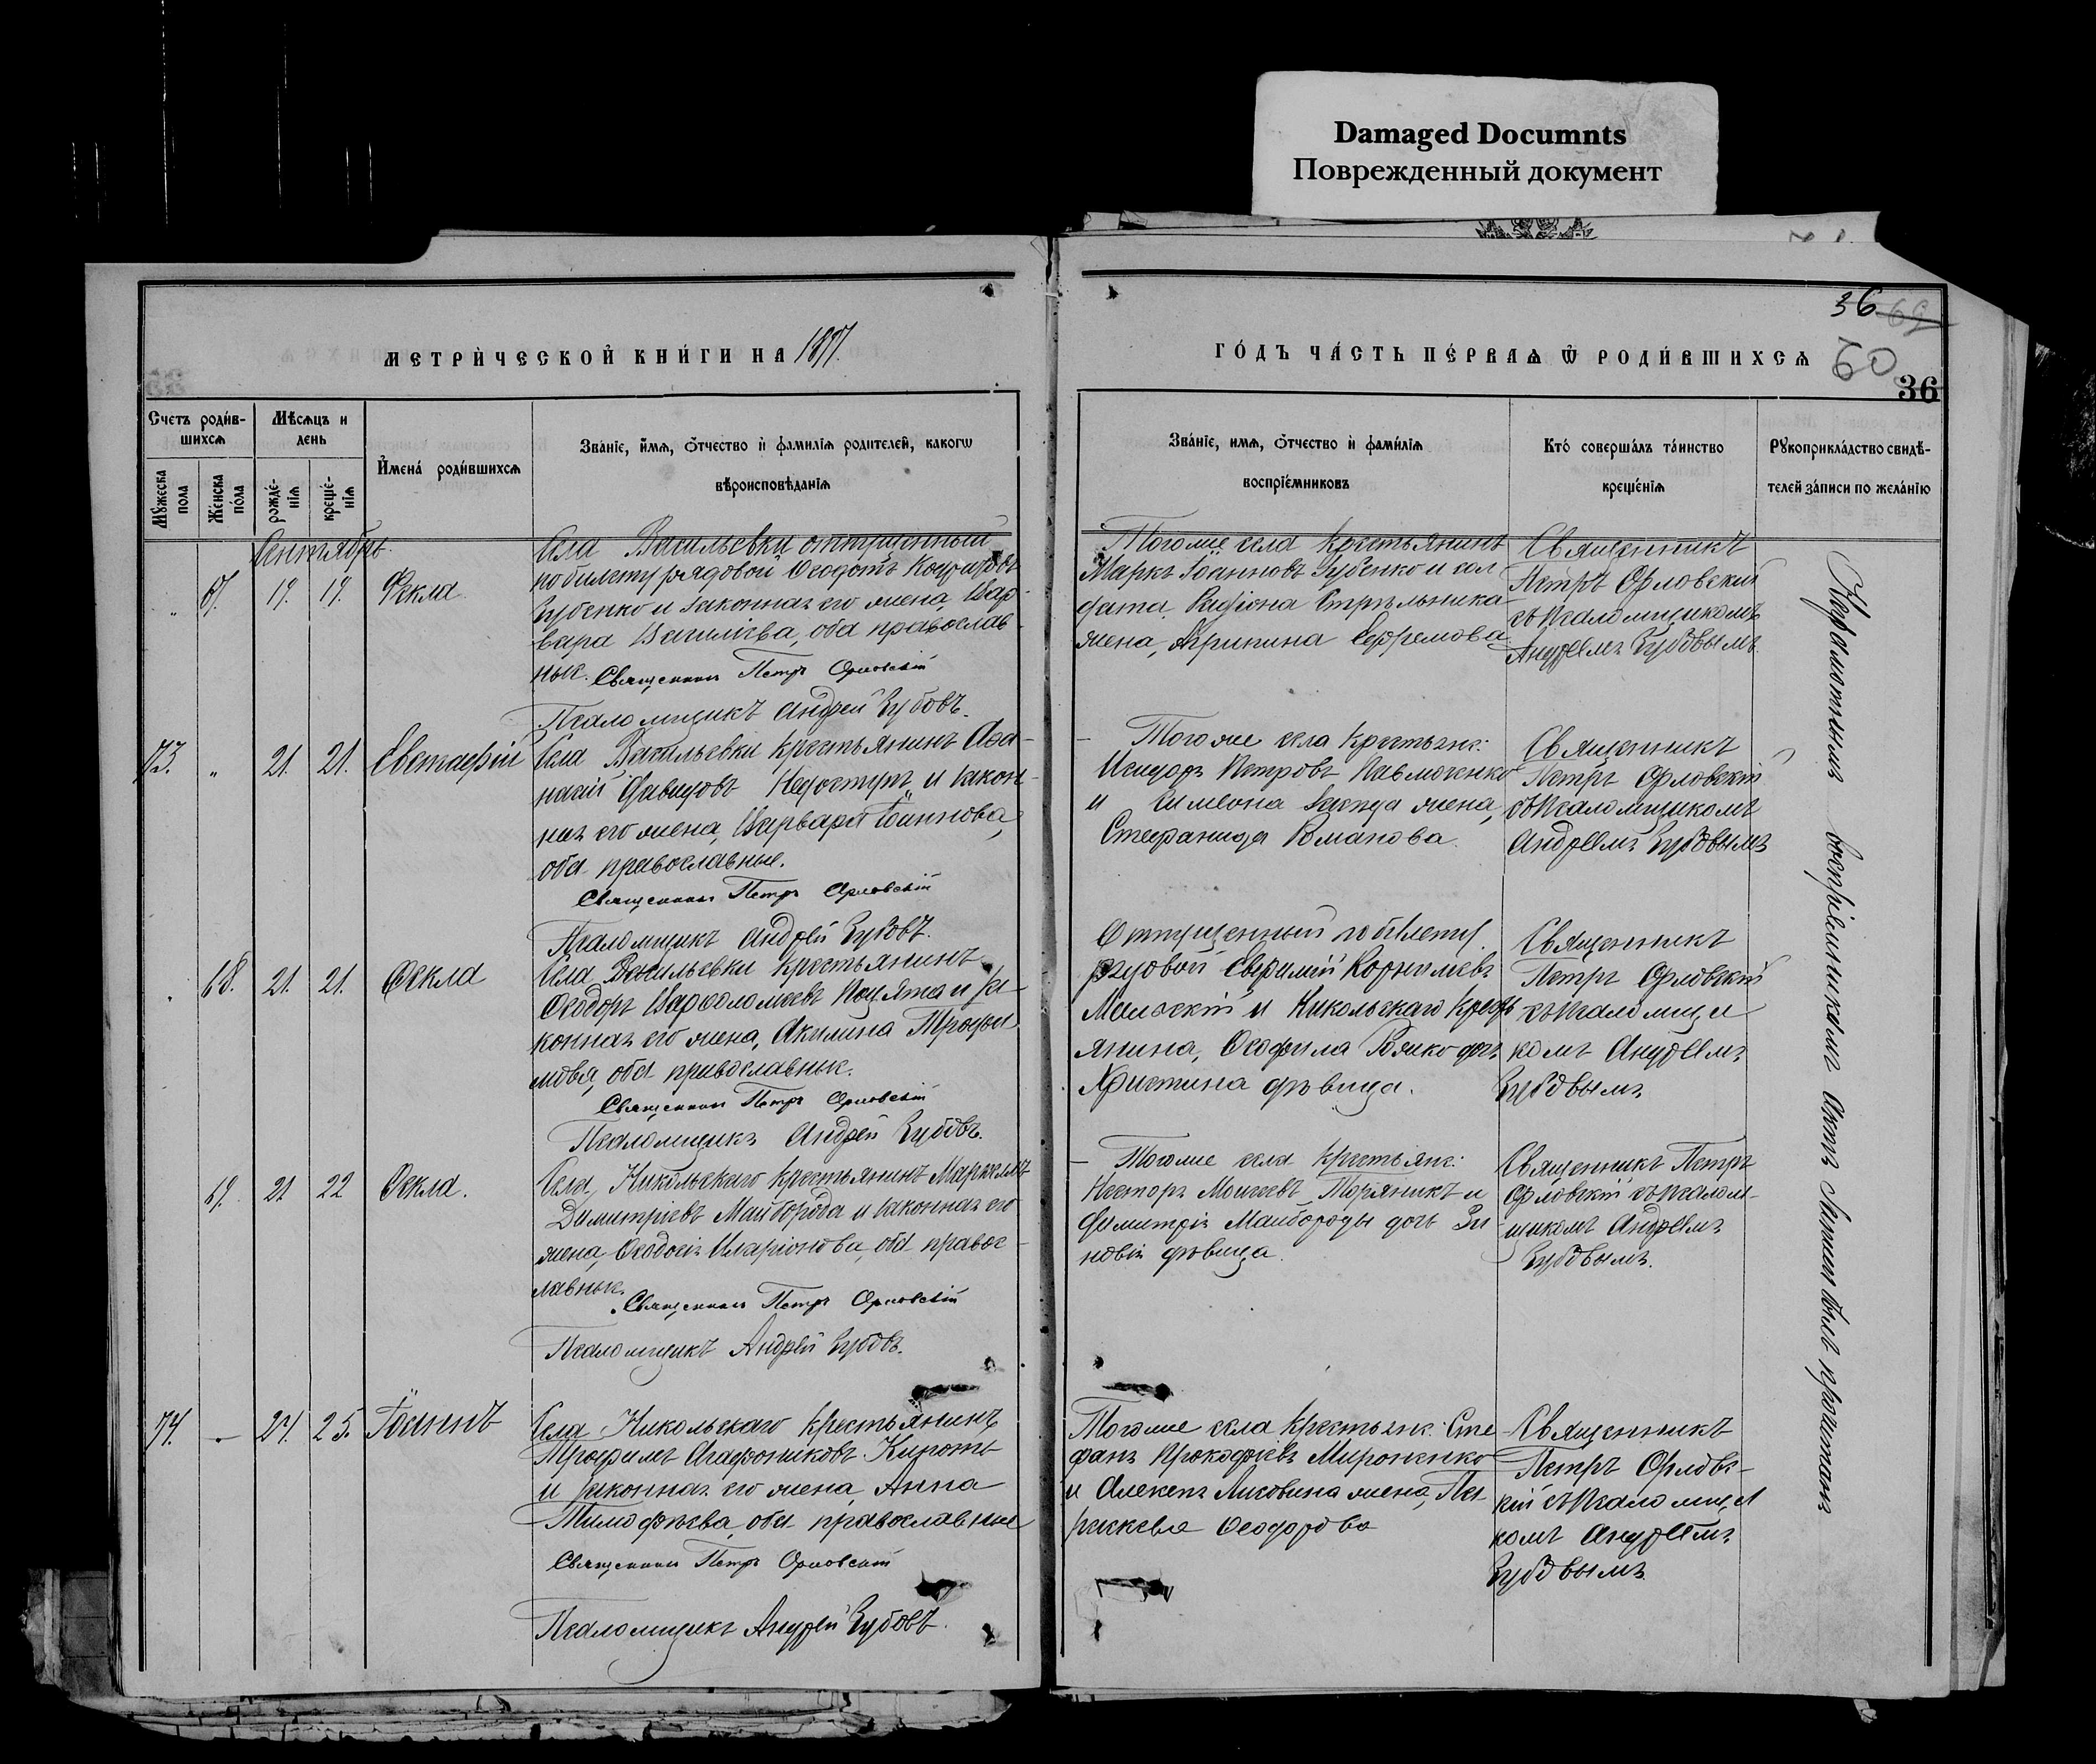 Damaged Documnts
Поврежденный документ
36 69
60
36
МЕТРИЧЕСКОЙ КНИГИ НА 1897.
ГОДЪ ЧАСТЬ ПЕРВАѦ Ѿ РОДИВШИХСѦ
Счетъ родив-
шихсѧ
Мѣсѧцъ и
день
Мꙋжеска
пола
Женска
пола
рожде-
нїѧ
креще-
нїѧ
Имена родившихсѧ
Званїе, имѧ, ѻтчество и фамилїѧ родителей, какогѡ
вѣроисповѣданїѧ
Званїе, имѧ, ѻтчество и фамилїѧ
воспрїемниковъ
Кто совершалъ таинство
крещенїѧ
Рꙋкоприкладство свидѣ-
телей записи по желанїю
Сентябрь.
" 67. 19. 19. Ѳекла
Села Васильевки отпущенный
по билету рядовой Ѳеодотъ
Губенко и законная его жена, Вар-
вара Василіева, оба православ-
ные. Священникъ Петръ Орловскій
Псаломщикъ Андрей Зубовъ.
Тогоже села крестьянинъ
Маркъ Іоанновъ Губенко и сол-
дата Родіона Стрѣльника
жена, Агрипина Ефремова
Священникъ
Петръ Орловскій
съ псаломщикомъ
Андреемъ Зубовымъ.
73. " 21. 21. Евстафій
Села Васильевки крестьянинъ Аѳа-
насій Давидовъ Недоступъ и закон-
ная его жена, Варвара Іоаннова,
оба православные.
Священникъ Петръ Орловскій
Псаломщикъ Андрей Зубовъ.
Тогоже села крестьяне:
Исидоръ Петровъ Павлюченко
и Симеона жена,
Стефанида Романова.
Священникъ
Петръ Орловскій
съ псаломщикомъ
Андреемъ Зубовымъ
68. 21. 21. Ѳекла
Села Васильевки крестьянинъ
Ѳеодоръ Варѳоломеевъ и за-
конная его жена, Акилина Трофи-
мова, оба православные.
Священникъ Петръ Орловскій
Псаломщикъ Андрей Зубовъ.
Отпущенный по билету
рядовой Евфимій Корниліевъ
и Никольскаго кресть-
янина, Ѳеофила дочь
Христина дѣвица.
Священникъ
Петръ Орловскій
съ псаломщи-
комъ Андреемъ
Зубовымъ
69. 21 22 Ѳекла.
Села Никольскаго крестьянинъ Маркеллъ
Димитріевъ Майборода и законная его
жена, Ѳеодосія Иларіонова, оба правос-
лавные.
Священникъ Петръ Орловскій
Псаломщикъ Андрей Зубовъ.
Тогоже села крестьяне:
Несторъ Моисеевъ Торяникъ и
Димитрія Майбороды дочь Зи-
новія дѣвица.
Священникъ Петръ
Орловскій съ псалом-
щикомъ Андреемъ
Зубовымъ.
74. - 24. 25. Іоаннъ
Села Никольскаго крестьянинъ
Трофимъ Агафониковъ
и законная его жена, Анна
Тимофѣева, оба православные
Священникъ Петръ Орловскій
Псаломщикъ Андрей Зубовъ.
Тогоже села крестьяне: Сте-
фанъ Прокофьевъ Мироненко
и Алексѣя Литовина жена, Па-
раскева Ѳеодорова
Священникъ
Петръ Орловс-
кій съ псаломщи-
комъ Андреемъ
Зубовымъ.
Неграмотнымъ воспріемникамъ актъ сей былъ прочитанъ